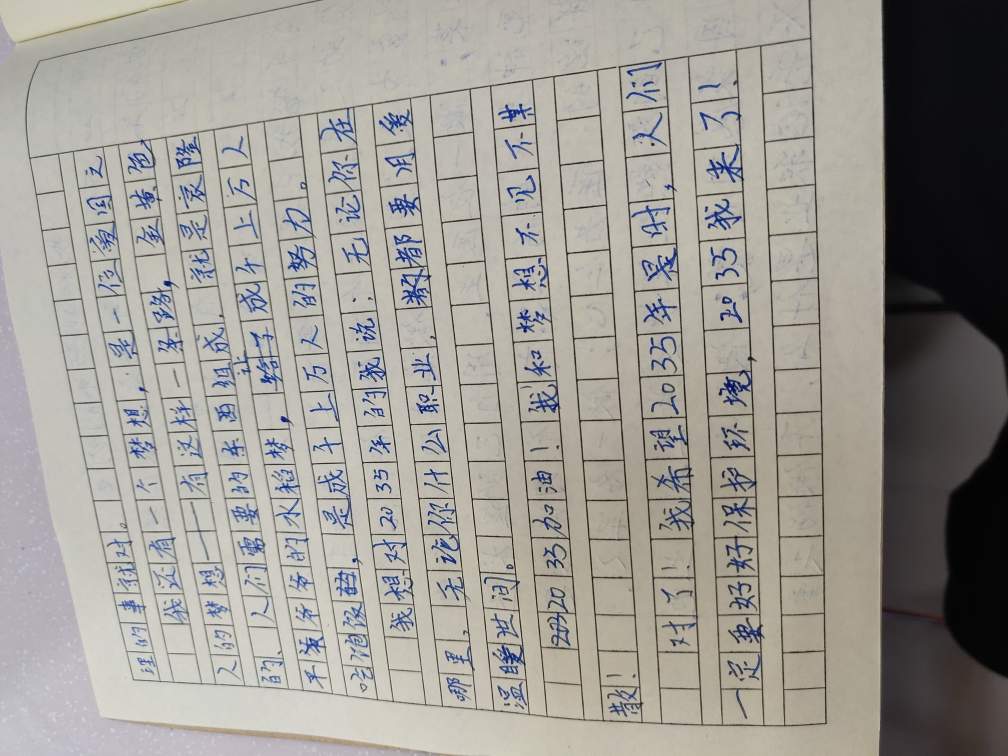 理的事就对。
我还有一个梦想，是一位爱国之
人的梦想——有这样一条路，金黄色
的、人们需要的东西组成，就是袁隆
平爷爷的水稻梦，让成千上万人
吃饱饭，是成千上万人的努力。
我想对2035年的我说：无论你在
哪里，无论你什么职业，都要用爱
温暖世间。
2035加油！我和梦想不见不
散！
对了！我希望2035年是时，人们
一定要好好保护环境，2035我来了！